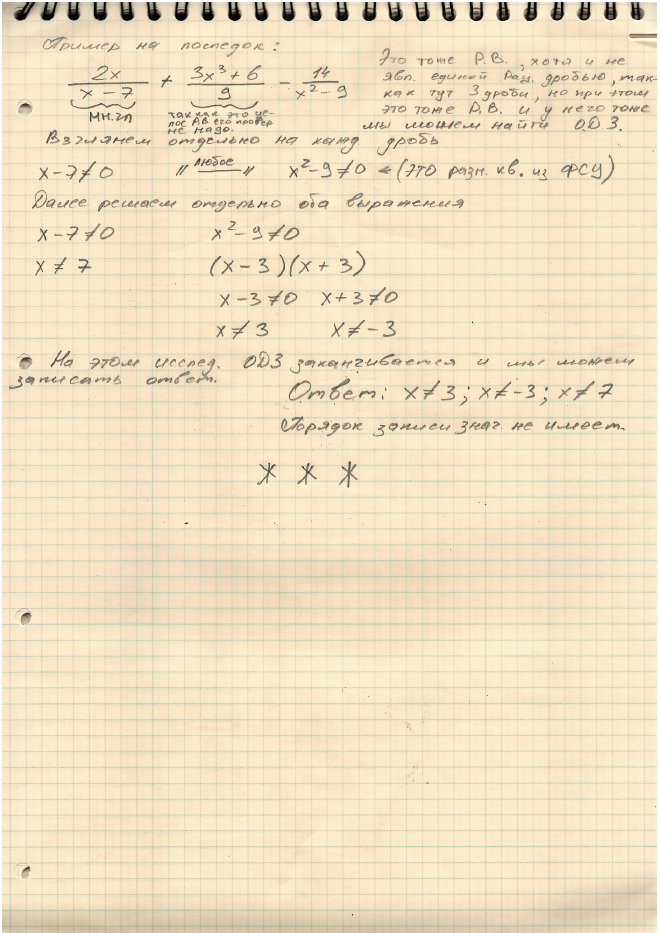 Пример на последок:
2x / x - 7 + 3x³ + 6 / 9 - 14 / x² - 9
мн.чл
так как это це-
лое Р.В его провер
не надо.
Это тоже Р.В., хотя и не
явл. единой рац. дробью, так-
как тут 3 дроби, но при этом
это тоже Р.В. и у него тоже
мы можем найти О.Д.З.
Взглянем отдельно на кажд дробь
x - 7 ≠ 0 " любое " x² - 9 ≠ 0 ← (это разн. кв. из ФСУ)
Далее решаем отдельно оба выражения
x - 7 ≠ 0 x² - 9 ≠ 0
x ≠ 7 (x - 3)(x + 3)
x - 3 ≠ 0 x + 3 ≠ 0
x ≠ 3 x ≠ -3
На этом исслед. ОДЗ заканчивается и мы можем
записать ответ.
Ответ: x ≠ 3; x ≠ -3; x ≠ 7
Порядок записи знач. не имеет.
* * *